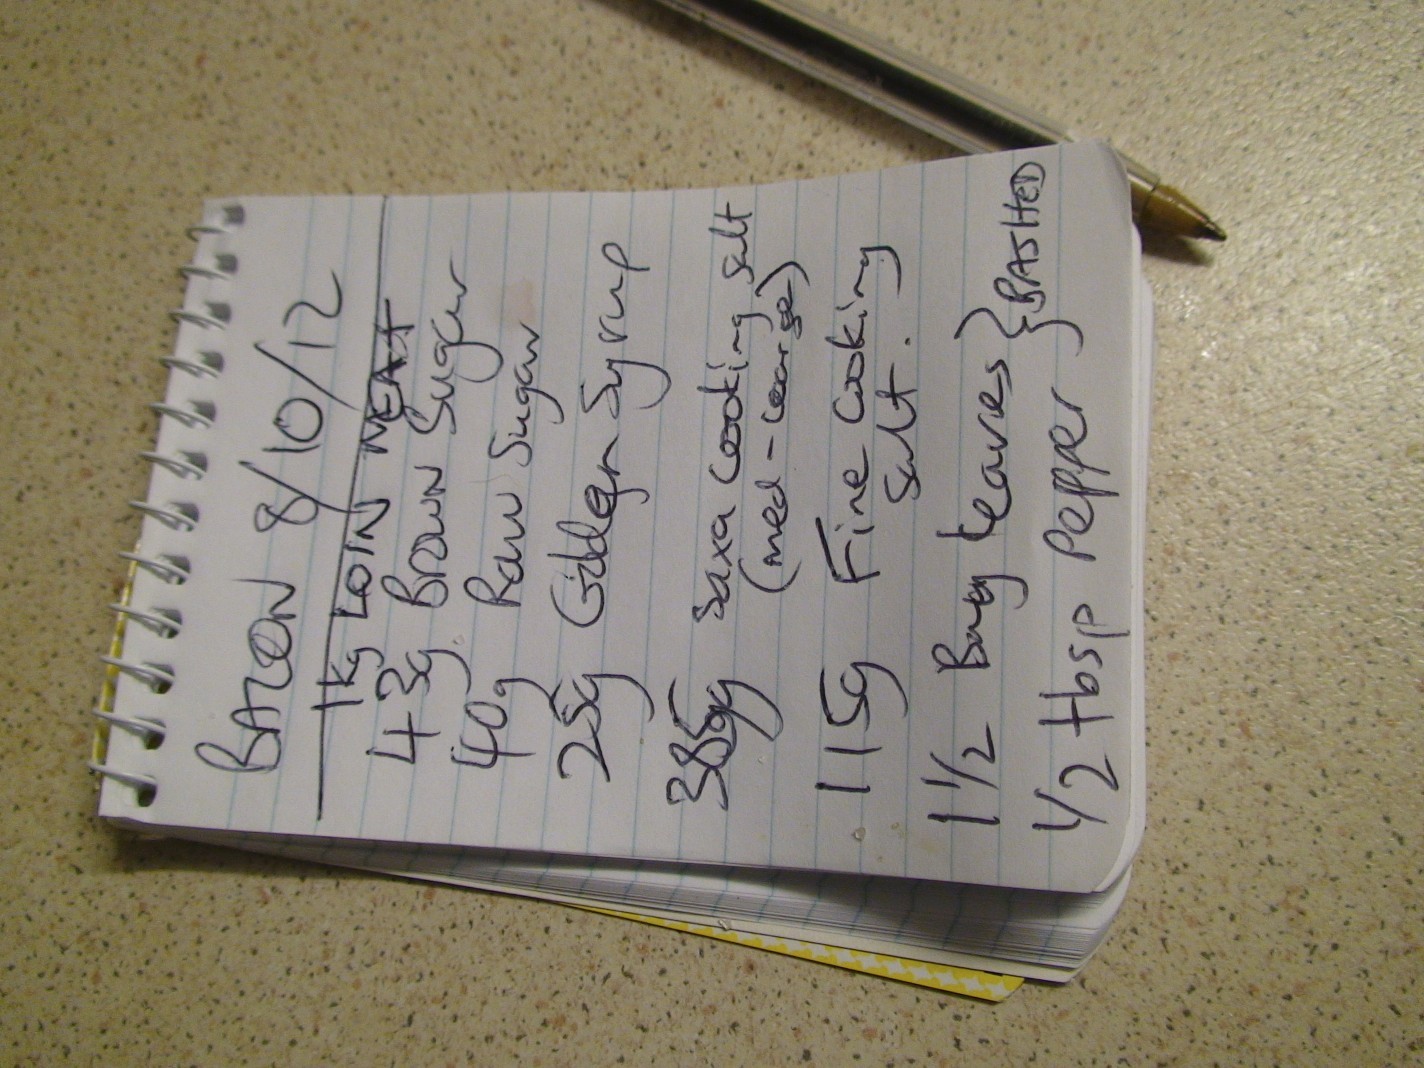 BACON 8/10/12
1kg LOIN MEAT
43g. Brown Sugar
40g Raw Sugar
25g Golden Syrup
385g Saxa Cooking Salt
(med-coarse)
115g Fine Cooking
Salt.
1 1/2 Bay Leaves } BASHED
1/2 tbsp Pepper